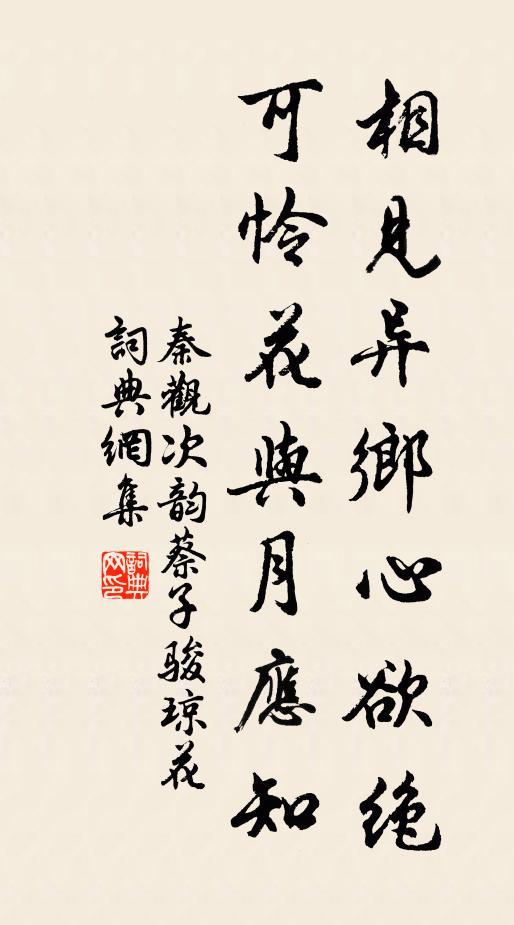 相見异鄉心欲绝
可怜花與月應知
秦觀次韵蔡子骏琼花
詞典網集
詞典网印